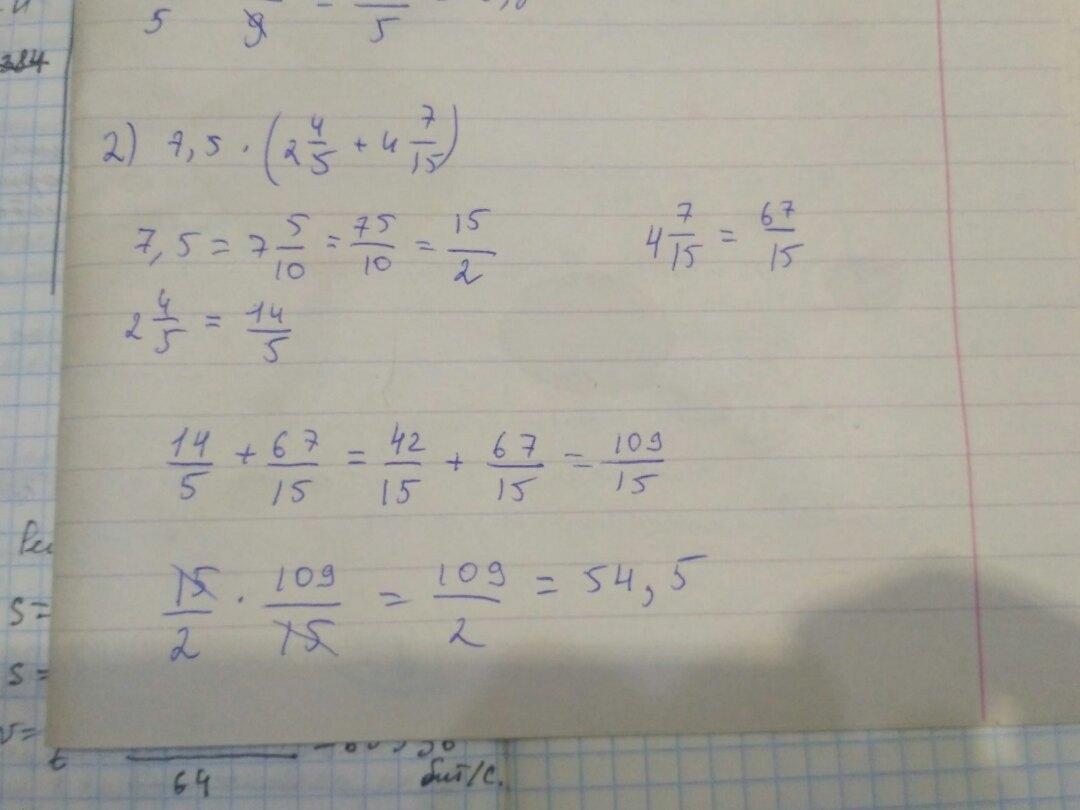 5 9 = 5
384
2) 7,5 · (2 4/5 + 4 7/15)
7,5 = 7 5/10 = 75/10 = 15/2
4 7/15 = 67/15
2 4/5 = 14/5
14/5 + 67/15 = 42/15 + 67/15 = 109/15
15/2 · 109/15 = 109/2 = 54,5
S=
S=
64
бит/с.